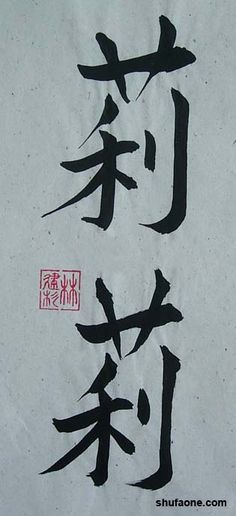 莉
莉
shufaone.com